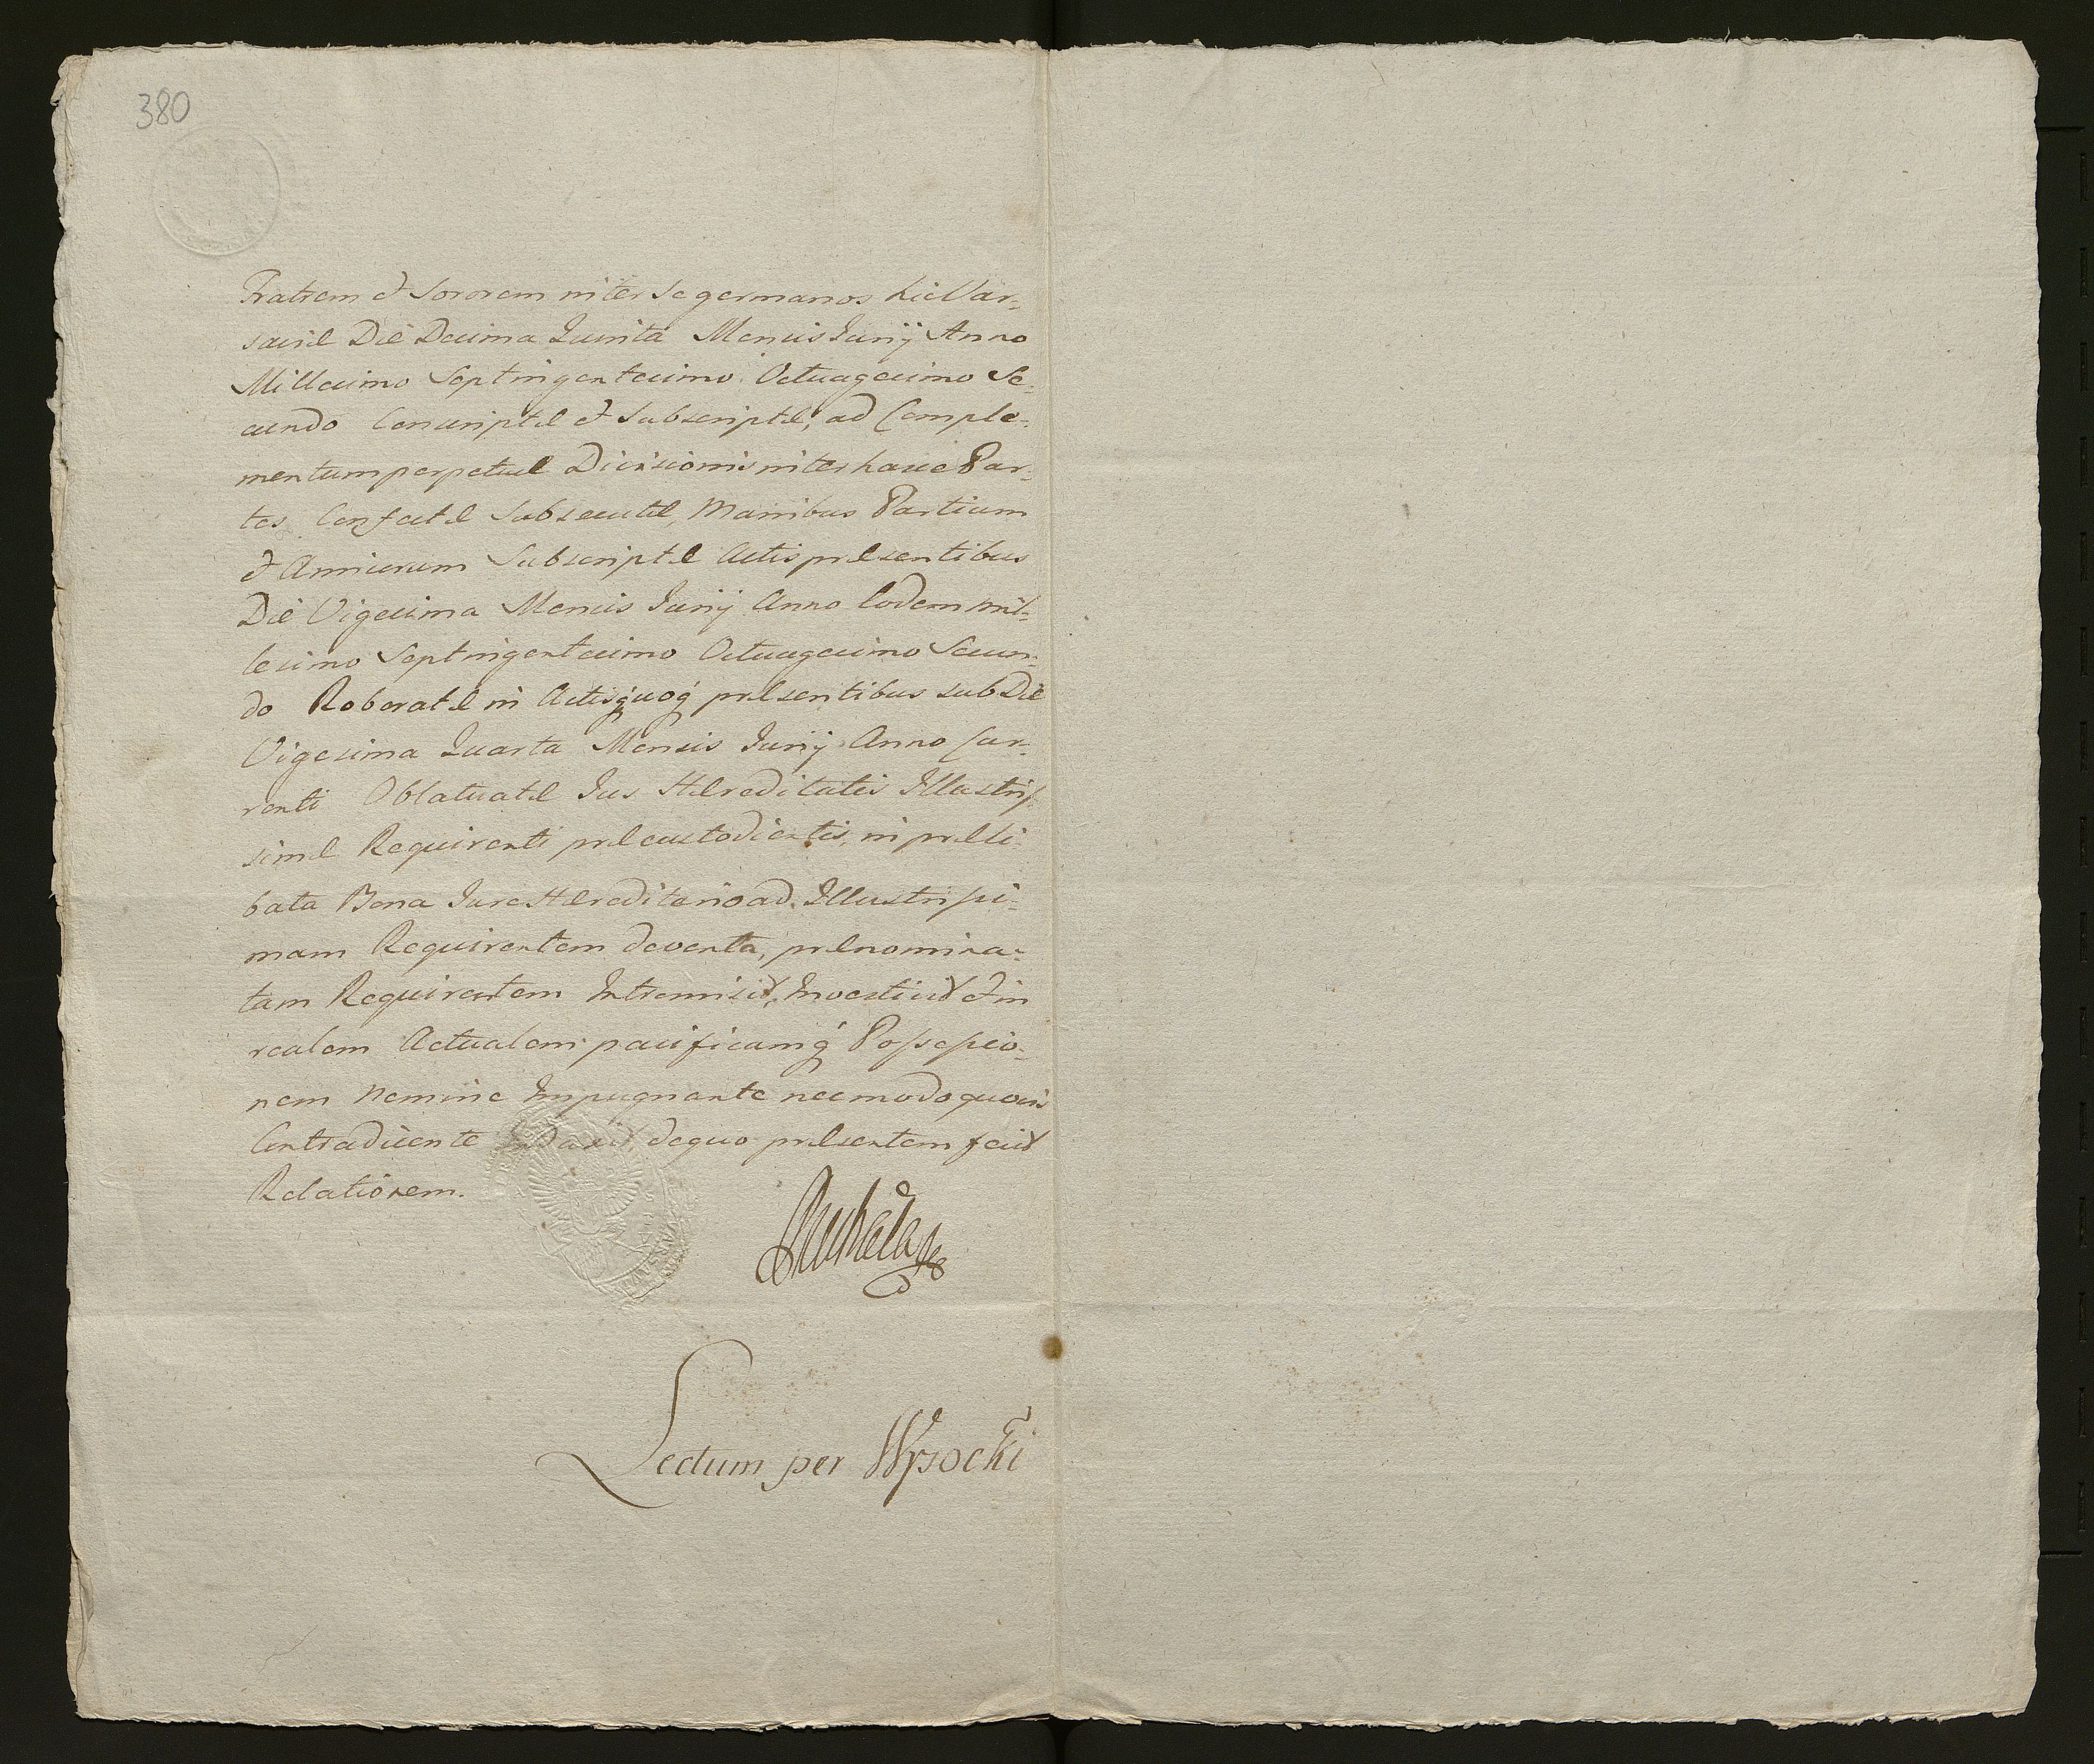 380
Fratrem et Sororem inter se germanos hic Var-
saviæ Die Decima Quinta Mensis Junij Anno
Millesimo Septingentesimo Octuagesimo Se-
cundo Conscriptæ et Subscriptæ, ad Comple-
mentum perpetuæ Divisionis inter hasce Par-
tes Confectæ Subsecutæ, Manibus Partium
et Amicorum Subscriptæ Actis præsentibus
Die Vigesima Mensis Junij Anno Eodem Mil-
lesimo Septingentesimo Octuagesimo Secun-
do Roboratæ in Actis quoq́ præsentibus sub Die
Vigesima Quarta Mensis Junij Anno Cur-
renti Oblatuatæ Jus Hæreditatis Illustris-
simæ Requirenti præcustodientis, in præli-
bata Bona Jure Hæreditario ad Illustrissi-
mam Requirentem deventa, prænomina-
tam Requirentem Intromisit, Investivit et in
realem Actualem pacificamq́ Possessio-
nem Nemine Impugnante nec modo quovis
Contradicente de quo præsentem fecit
Relationem.
Lectum per Wysocki